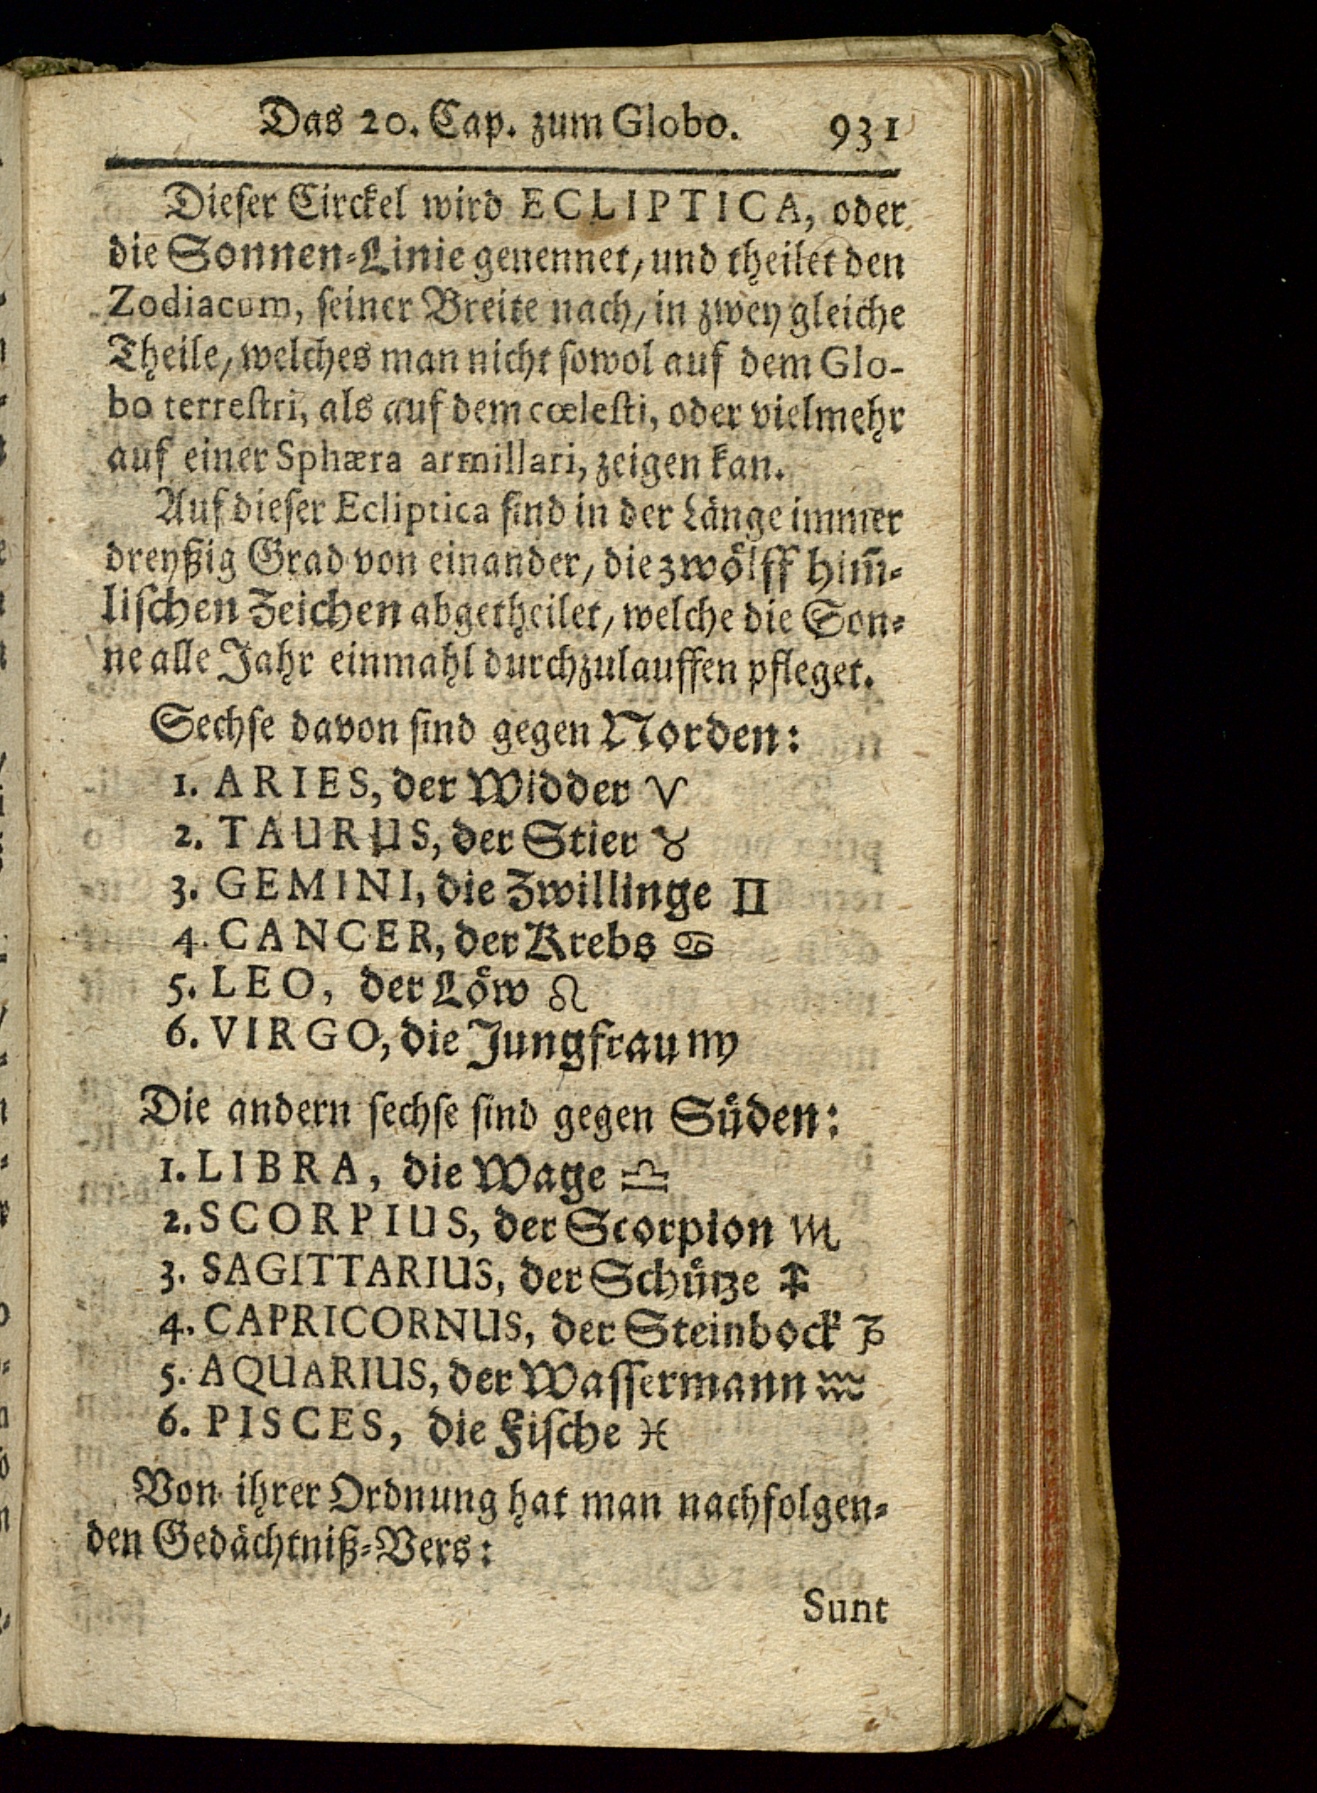 Das 20. Cap. zum Globo. 931
Dieser Circkel wird ECLIPTICA, oder
die Sonnen-Linie genennet, und theilet den
Zodiacum, seiner Breite nach, in zwey gleiche
Theile, welches man nicht sowol auf dem Glo-
bo terrestri, als auf dem cœlesti, oder vielmehr
auf einer Sphæra armillari, zeigen kan.
Auf dieser Ecliptica sind in der Länge immer
dreyßig Grad von einander, die zwölff him̃-
lischen Zeichen abgetheilet, welche die Son-
ne alle Jahr einmahl durchzulauffen pfleget.
Sechse davon sind gegen Norden:
1. ARIES, der Widder ♈
2. TAURUS, der Stier ♉
3. GEMINI, die Zwillinge ♊
4. CANCER, der Krebs ♋
5. LEO, der Löw ♌
6. VIRGO, die Jungfrau ♍
Die andern sechse sind gegen Süden:
1. LIBRA, die Wage ♎
2. SCORPIUS, der Scorpion ♏
3. SAGITTARIUS, der Schütze ♐
4. CAPRICORNUS, der Steinbock ♑
5. AQUARIUS, der Wassermann ♒
6. PISCES, die Fische ♓
Von ihrer Ordnung hat man nachfolgen-
den Gedächtniß-Vers:
Sunt